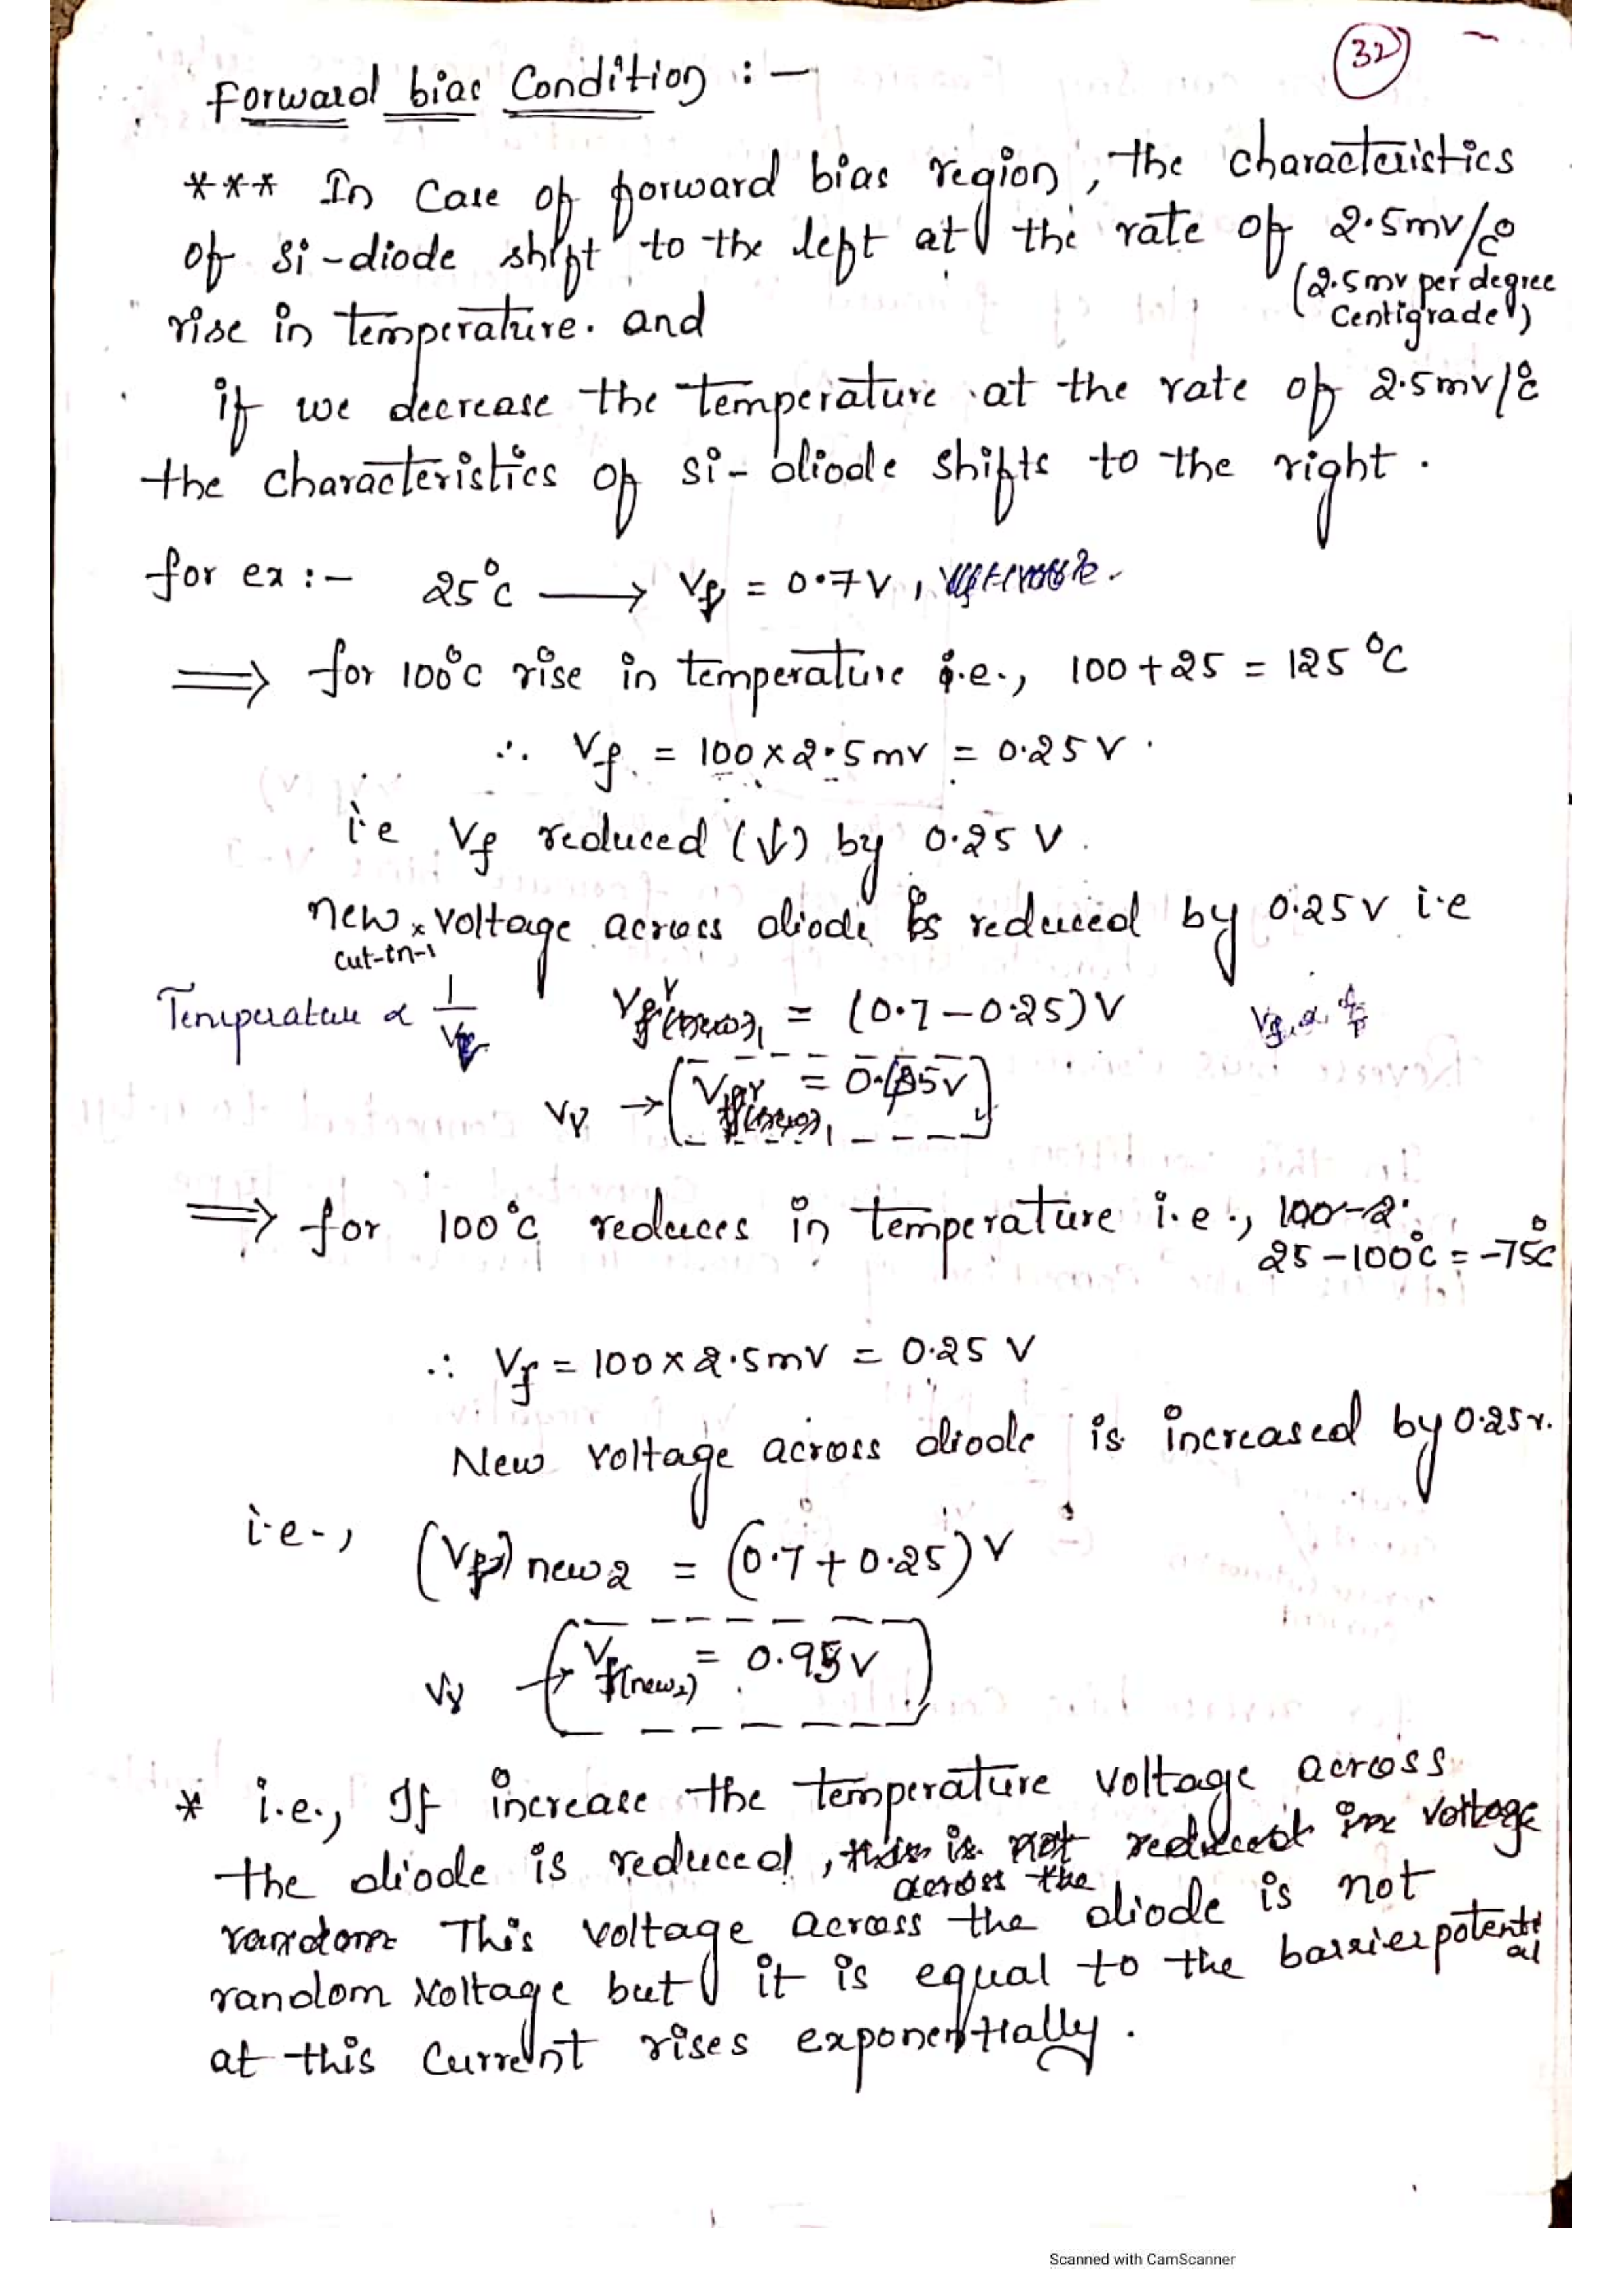 32
Forward bias Condition :-
*** In Case of forward bias region, the characteristics
of si-diode shift to the left at the rate of 2.5mv/c°
(2.5mv per degree
Centigrade)
rise in temperature. and
if we decrease the temperature at the rate of 2.5mv/°c
the characteristics of si-diode shifts to the right.
for ex :- 25°C ⟶ Vf = 0.7V,
⟹ for 100°C rise in temperature i.e., 100+25 = 125 °C
∴ Vf = 100×2.5mv = 0.25V.
i.e Vf reduced (↓) by 0.25 V.
new voltage across diode is reduced by 0.25V i.e
cut-in-
Temperature ∝ 1/V
Vf(new)1 = (0.7-0.25)V
Vγ → = 0.45V
⟹ for 100°C reduces in temperature i.e., 100-2
25-100°C = -75°C
∴ Vf = 100×2.5mV = 0.25 V
New voltage across diode is increased by 0.25v.
i.e., (Vf) new2 = (0.7+0.25)V
Vγ → Vf(new2) = 0.95V
* i.e., If increase the temperature voltage across
the diode is reduced, this is not reduced in voltage
across the
random This voltage across the diode is not
random voltage but it is equal to the barrier potential
at this current rises exponentially.
Scanned with CamScanner